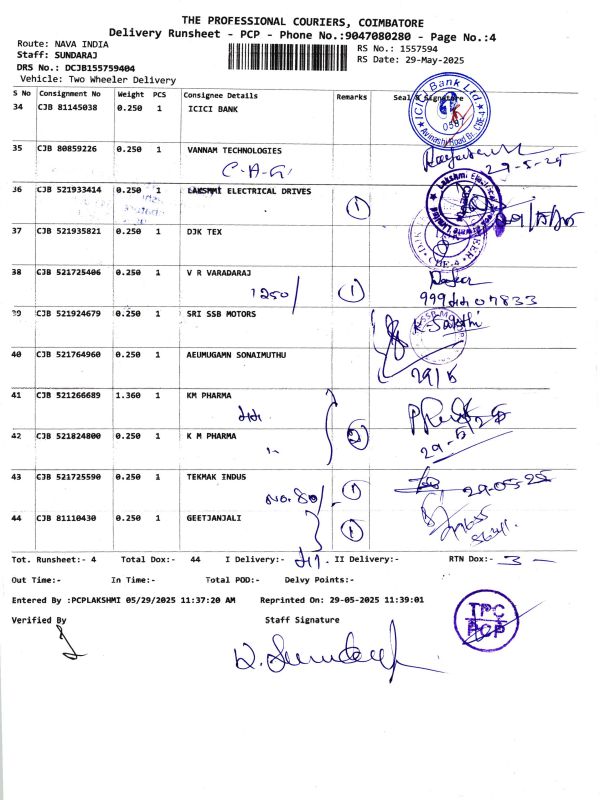 THE PROFESSIONAL COURIERS, COIMBATORE
Delivery Runsheet - PCP - Phone No.:9047080280 - Page No.:4
Route: NAVA INDIA
RS No.: 1557594
Staff: SUNDARAJ
RS Date: 29-May-2025
DRS No.: DCJB155759404
Vehicle: Two Wheeler Delivery
S No Consignment No Weight PCS Consignee Details Remarks Seal & Signature
34 CJB 81145038 0.250 1 ICICI BANK
ICICI Bank Ltd
Avinashi Road Br. CBE-4
35 CJB 80859226 0.250 1 VANNAM TECHNOLOGIES
C-A-G
29-5-25
36 CJB 521933414 0.250 1 LAKSHMI ELECTRICAL DRIVES
1
37 CJB 521935821 0.250 1 DJK TEX
CBE-4
38 CJB 521725406 0.250 1 V R VARADARAJ
1250/ 1
39 CJB 521924679 0.250 1 SRI SSB MOTORS
40 CJB 521764960 0.250 1 AEUMUGAMN SONAIMUTHU
29/5
41 CJB 521266689 1.360 1 KM PHARMA
42 CJB 521824800 0.250 1 K M PHARMA
2
29-5-25
43 CJB 521725590 0.250 1 TEKMAK INDUS
No. 80/ 1 29-05-25
44 CJB 81110430 0.250 1 GEETJANJALI
1
Tot. Runsheet:- 4 Total Dox:- 44 I Delivery:- II Delivery:- RTN Dox:- 3 -
Out Time:- In Time:- Total POD:- Delvy Points:-
Entered By :PCPLAKSHMI 05/29/2025 11:37:20 AM Reprinted On: 29-05-2025 11:39:01
Verified By Staff Signature
TPC
PCP